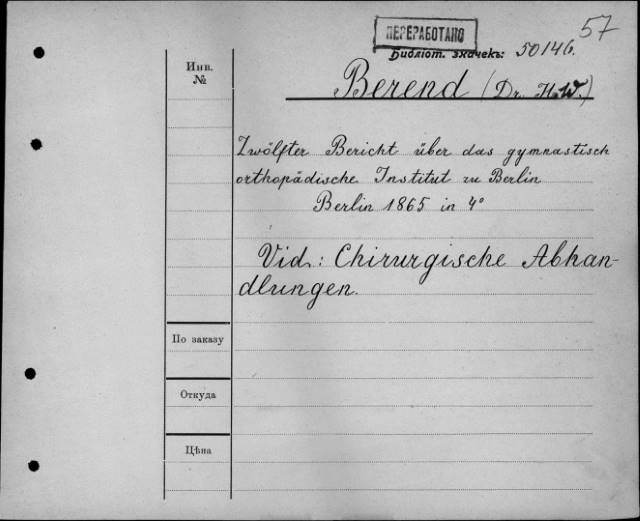 57
ПЕРЕРАБОТАНО
Библіот. значекъ: 50146.
Инв.
№
Berend (Dr. H.W.)
Zwölfter Bericht über das gymnastisch
orthopädische Institut zu Berlin
Berlin 1865 in 4°
Vid.: Chirurgische Abhan-
dlungen.
По заказу
Откуда
Цѣна